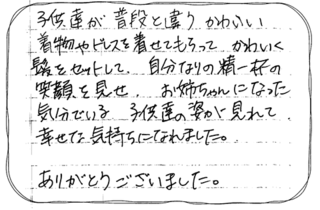 子供達が普段と違うかわいい
着物やドレスを着せてもらって かわいく
髪をセットして、自分なりの精一杯の
笑顔を見せ、お姉ちゃんになった
気分でいる 子供達の姿が見れて、
幸せな気持ちになれました。
ありがとうございました。